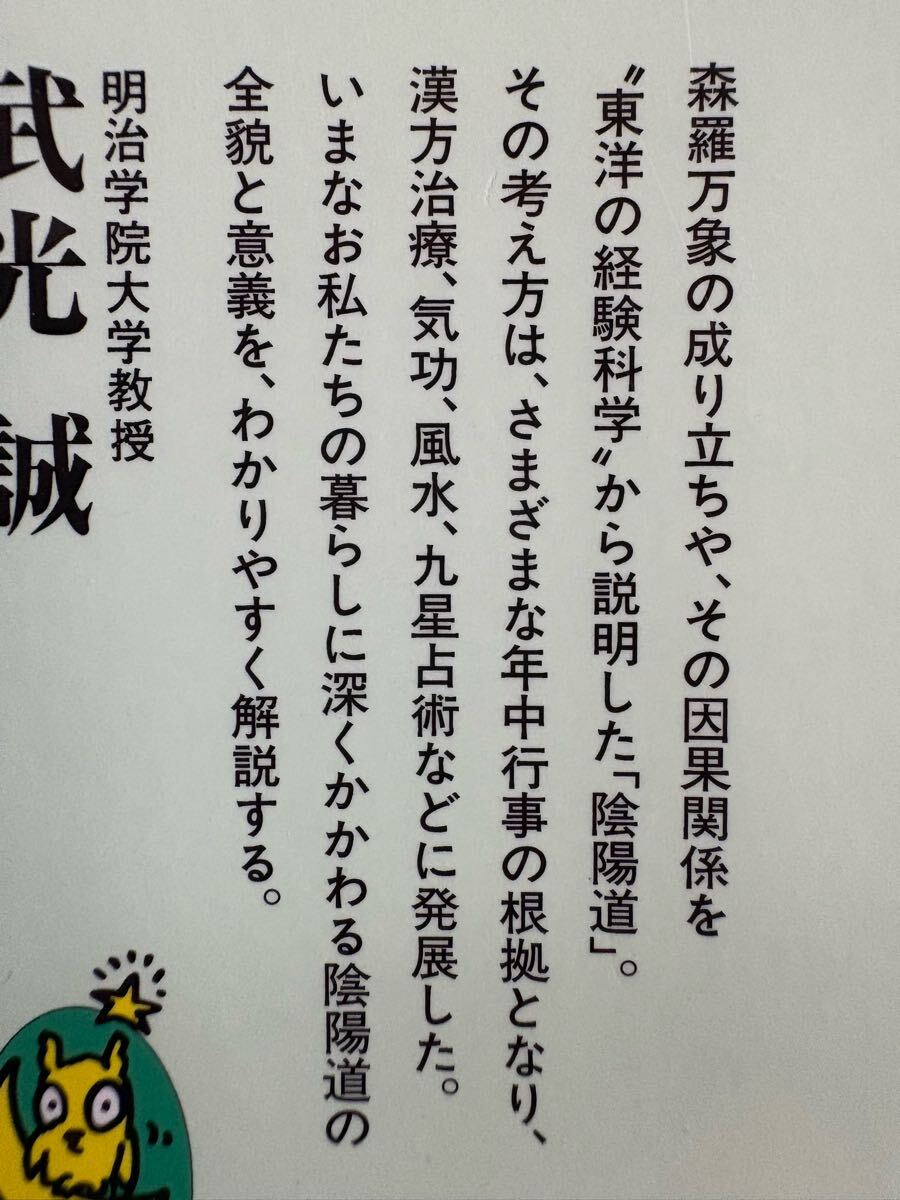 森羅万象の成り立ちや、その因果関係を
〝東洋の経験科学〟から説明した「陰陽道」。
その考え方は、さまざまな年中行事の根拠となり、
漢方治療、気功、風水、九星占術などに発展した。
いまなお私たちの暮らしに深くかかわる陰陽道の
全貌と意義を、わかりやすく解説する。
明治学院大学教授
武光 誠